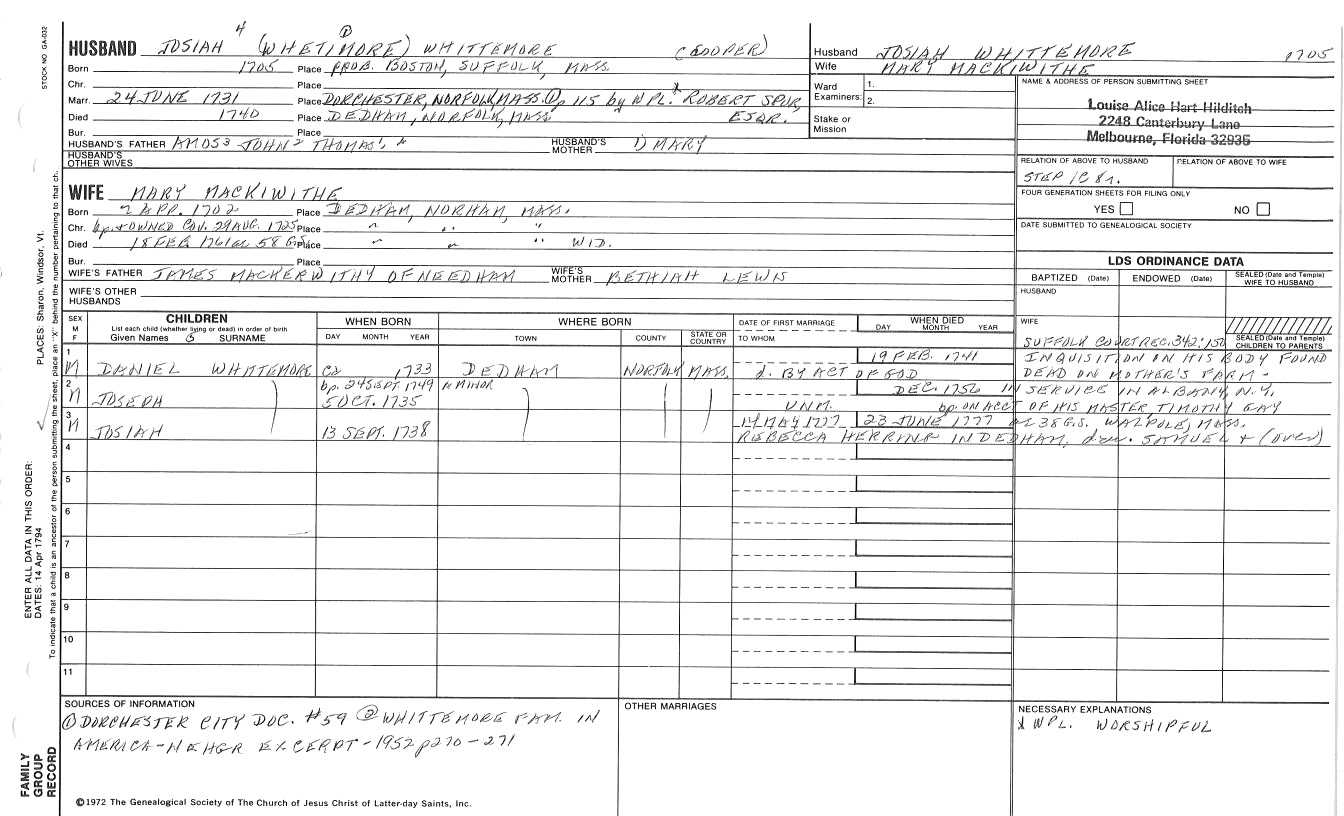 STOCK NO. GA-032
HUSBAND JOSIAH 4 (WHETIMORE) ① WHITTEMORE (COOPER)
Born 1705 Place PROB. BOSTON, SUFFOLK, MASS.
Chr. Place
Marr. 24 JUNE 1731 Place DORCHESTER, NORFOLK, MASS. ① p 115 by WPL. * ROBERT SPUR, ESQR.
Died 1740 Place DEDHAM, NORFOLK, MASS
Bur. Place
HUSBAND'S FATHER AMOS 3 JOHN 2 THOMAS 1 HUSBAND'S MOTHER 1) MARY
HUSBAND'S OTHER WIVES
Husband JOSIAH WHITTEMORE 1705
Wife MARY MACKIWITHE
Ward Examiners: 1. 2.
Stake or Mission
NAME & ADDRESS OF PERSON SUBMITTING SHEET
Louise Alice Hart Hilditch
2248 Canterbury Lane
Melbourne, Florida 32935
RELATION OF ABOVE TO HUSBAND RELATION OF ABOVE TO WIFE
STEP 1C 8r.
FOUR GENERATION SHEETS FOR FILING ONLY
YES NO
DATE SUBMITTED TO GENEALOGICAL SOCIETY
WIFE MARY MACKIWITHE
Born 2 APR. 1702 Place DEDHAM, NORHAM, MASS.
Chr. bp. + OWNED COV. 29 AUG. 1725 Place " " "
Died 18 FEB 1761 ae 58 G.S. Place " " " WID.
Bur. Place
WIFE'S FATHER JAMES MACKERWITHY OF NEEDHAM WIFE'S MOTHER BETHIAH LEWIS
WIFE'S OTHER HUSBANDS
LDS ORDINANCE DATA
BAPTIZED (Date) ENDOWED (Date) SEALED (Date and Temple) WIFE TO HUSBAND
HUSBAND
WIFE
SEALED (Date and Temple) CHILDREN TO PARENTS
SEX M F
CHILDREN
List each child (whether living or dead) in order of birth
Given Names 5 SURNAME
WHEN BORN
DAY MONTH YEAR
WHERE BORN
TOWN COUNTY STATE OR COUNTRY
DATE OF FIRST MARRIAGE
TO WHOM
WHEN DIED
DAY MONTH YEAR
SUFFOLK COURT REC. 342:150
1 M DANIEL WHITTEMORE ca 1733 DEDHAM NORFOLK MASS. 19 FEB. 1741 d. BY ACT OF GOD
INQUISITION ON HIS BODY FOUND
DEAD ON MOTHER'S FARM -
2 M JOSEPH bp. 24 SEPT. 1749 A MINOR 5 OCT. 1735 UNM. DEC. 1756 IN SERVICE IN ALBANY, N.Y.
bp. ON ACCT OF HIS MASTER TIMOTHY GAY
3 M JOSIAH 13 SEPT. 1738 23 JUNE 1777 ae 38 G.S. WALPOLE, MASS.
REBECCA HERRING IN DEDHAM, dau. SAMUEL + (over)
4
5
6
7
8
9
10
11
SOURCES OF INFORMATION
① DORCHESTER CITY DOC. #59 ② WHITTEMORE FAM. IN
AMERICA - NEHGR EXCERPT - 1952 p 270 - 271
OTHER MARRIAGES
NECESSARY EXPLANATIONS
* WPL. WORSHIPFUL
©1972 The Genealogical Society of The Church of Jesus Christ of Latter-day Saints, Inc.
FAMILY GROUP RECORD
ENTER ALL DATA IN THIS ORDER:
DATES: 14 Apr 1794
PLACES: Sharon, Windsor, Vt.
To indicate that a child is an ancestor of the person submitting the sheet, place an "X" behind the number pertaining to that ch.